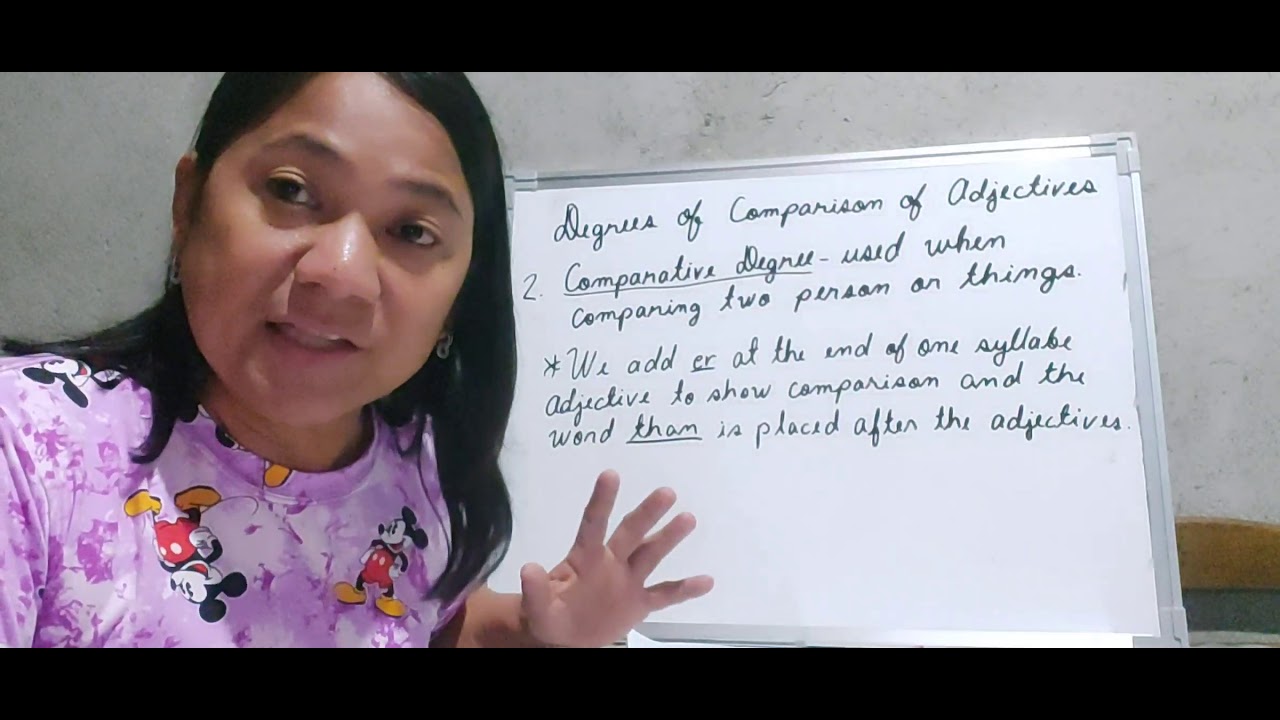 Degrees of Comparison of Adjectives
2. Comparative Degree - used when
comparing two person or things.
*We add er at the end of one syllabe
adjective to show comparison and the
word than is placed after the adjectives.